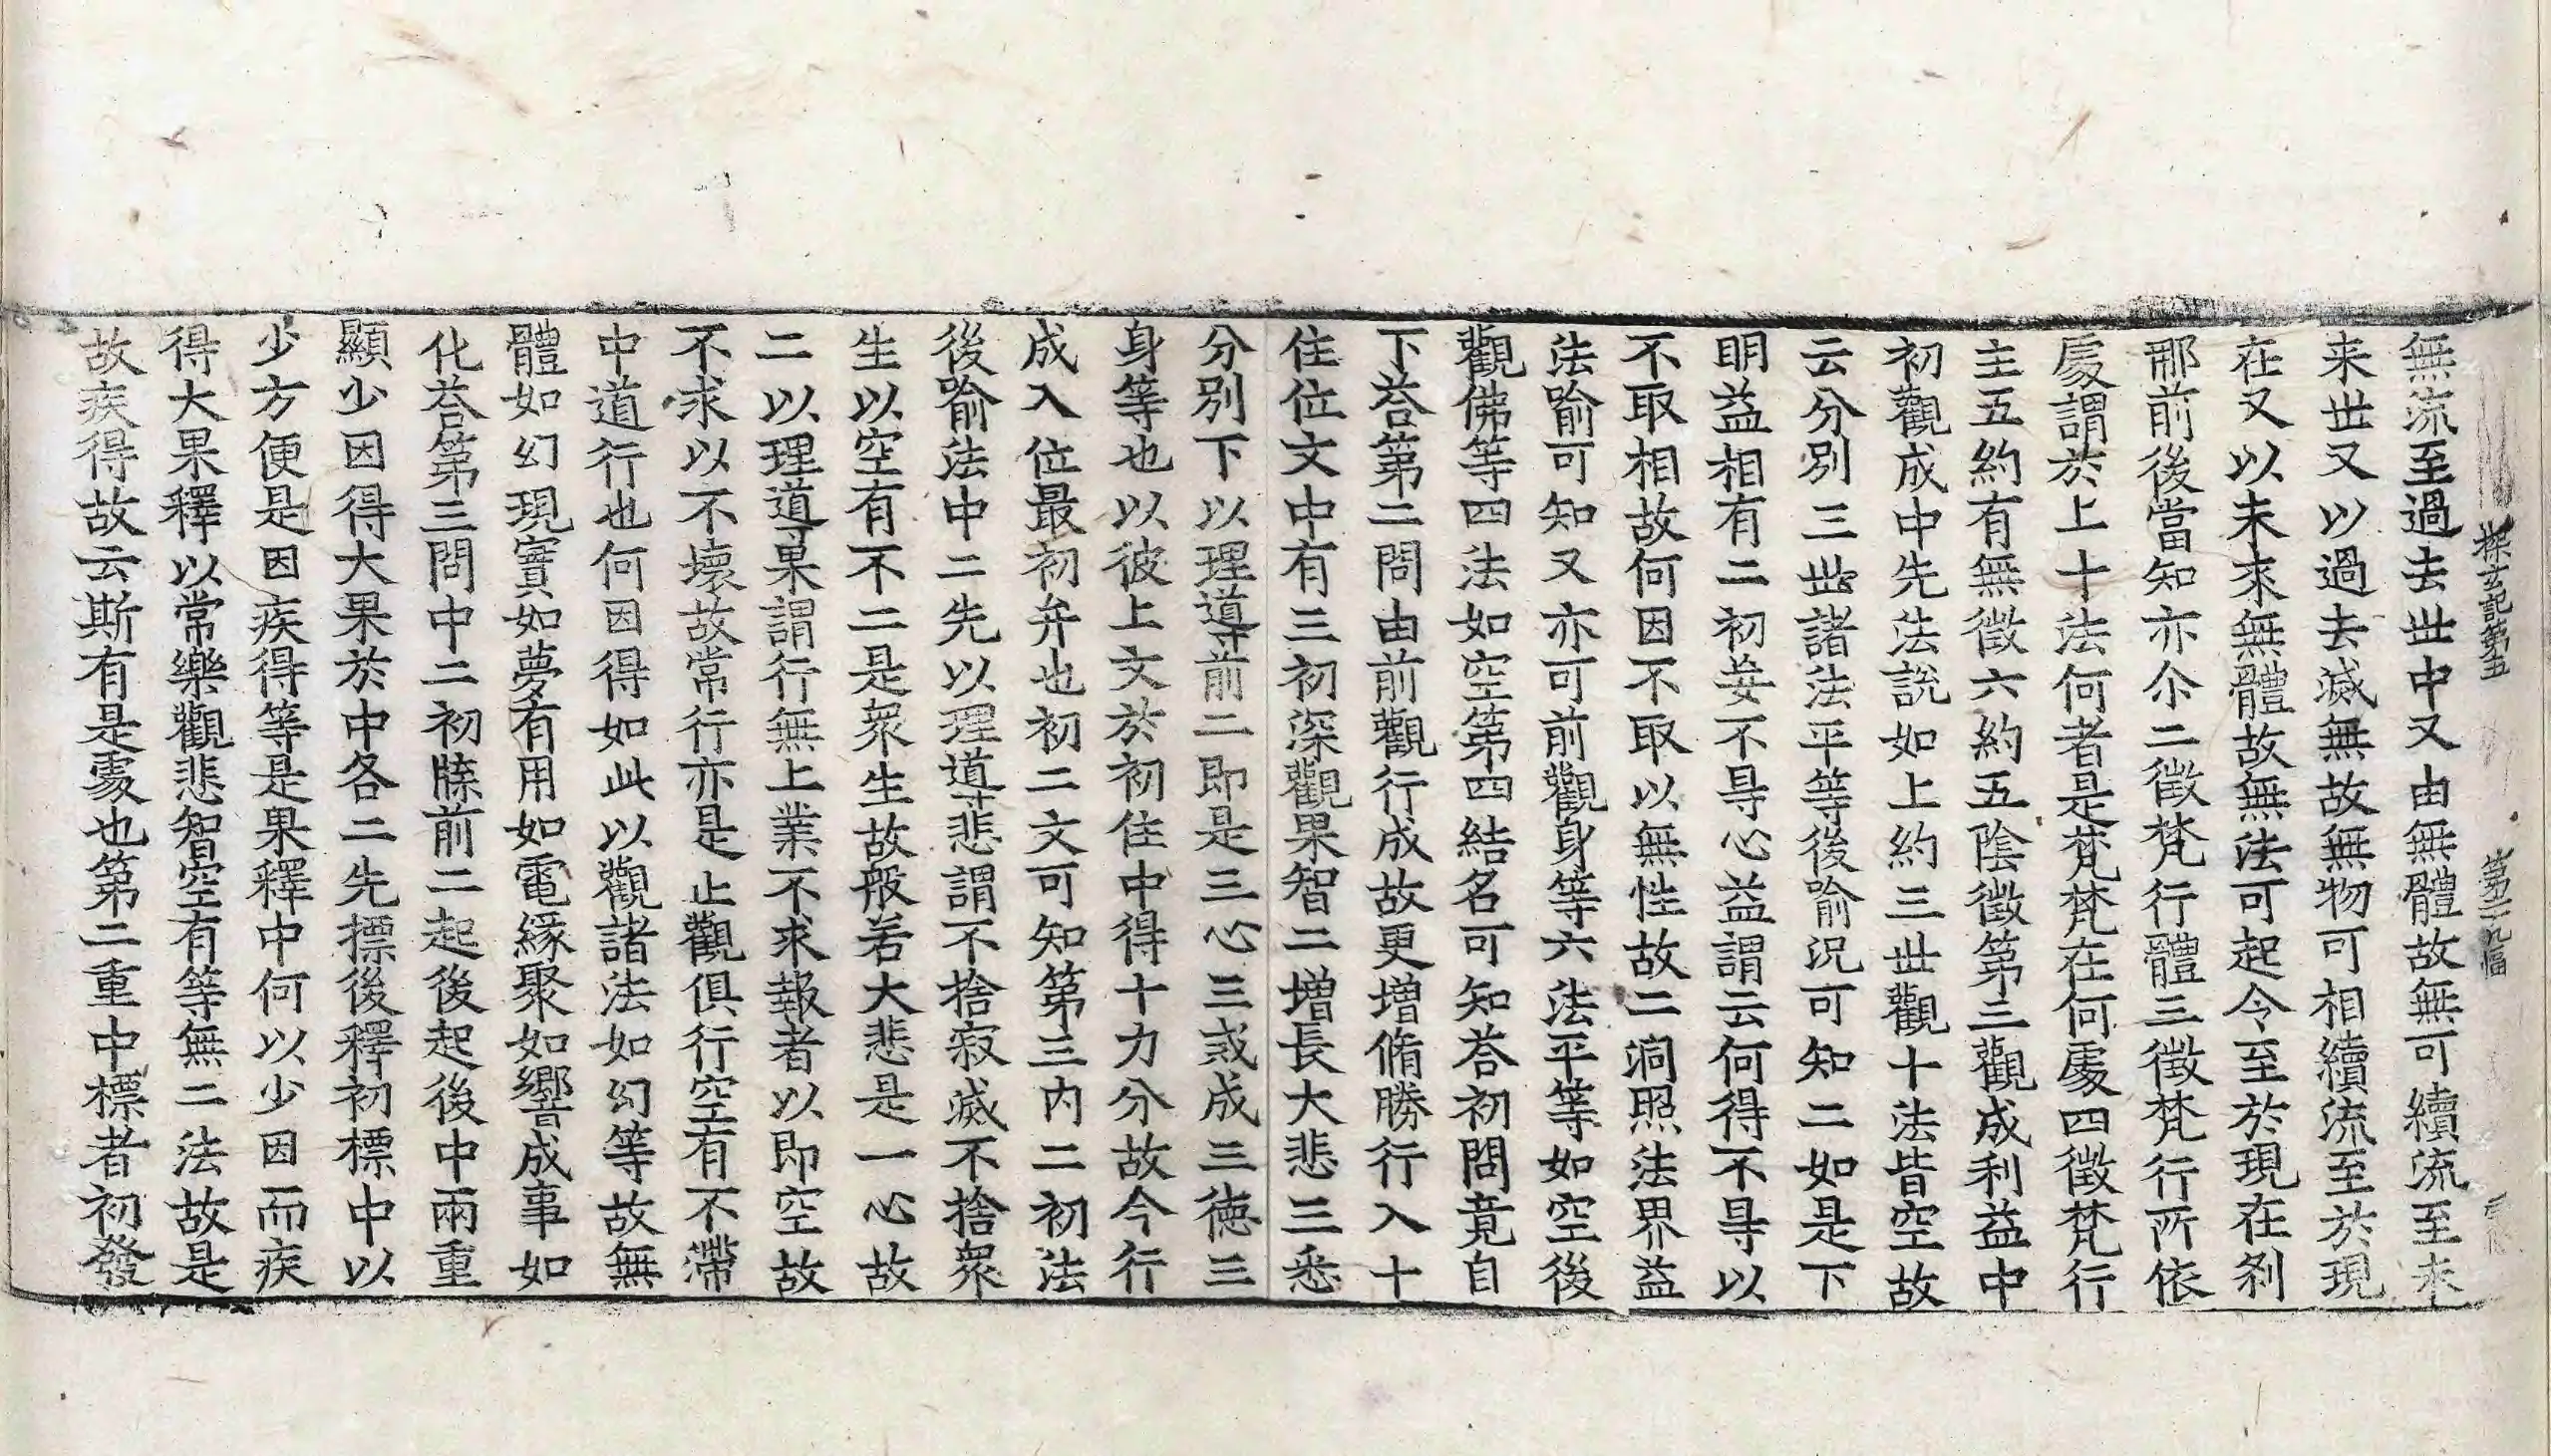 探玄記第五 第二九幅
無流至過去世中又由無體故無可續流至未
来世又以過去滅無故無物可相續流至於現
在又以未來無體故無法可起令至於現在剎
那前後當知亦尒二徵梵行體三徵梵行所依
處謂於上十法何者是梵梵在何處四徵梵行
主五約有無徵六約五陰徵第三觀成利益中
初觀成中先法說如上約三世觀十法皆空故
云分別三世諸法平等後喻況可知二如是下
明益相有二初妾不㝵心益謂云何得不㝵以
不取相故何因不取以無性故二洞照法界益
法喻可知又亦可前觀身等六法平等如空後
觀佛等四法如空第四結名可知荅初問竟自
下荅第二問由前觀行成故更增脩勝行入十
住位文中有三初深觀果智二增長大悲三悉
分別下以理導前二即是三心三或成三德三
身等也以彼上文於初住中得十力分故今行
成入位最初弁也初二文可知第三内二初法
後喻法中二先以理導悲謂不捨寂滅不捨衆
生以空有不二是衆生故般若大悲是一心故
二以理導果謂行無上業不求報者以即空故
不求以不壞故常行亦是止觀俱行空有不滯
中道行也何因得如此以觀諸法如幻等故無
體如幻現實如夢有用如電緣聚如響成事如
化荅第三問中二初牒前二起後起後中兩重
顯少因得大果於中各二先標後釋初標中以
少方便是因疾得等是果釋中何以少因而疾
得大果釋以常樂觀悲智空有等無二法故是
故疾得故云斯有是處也第二重中標者初發